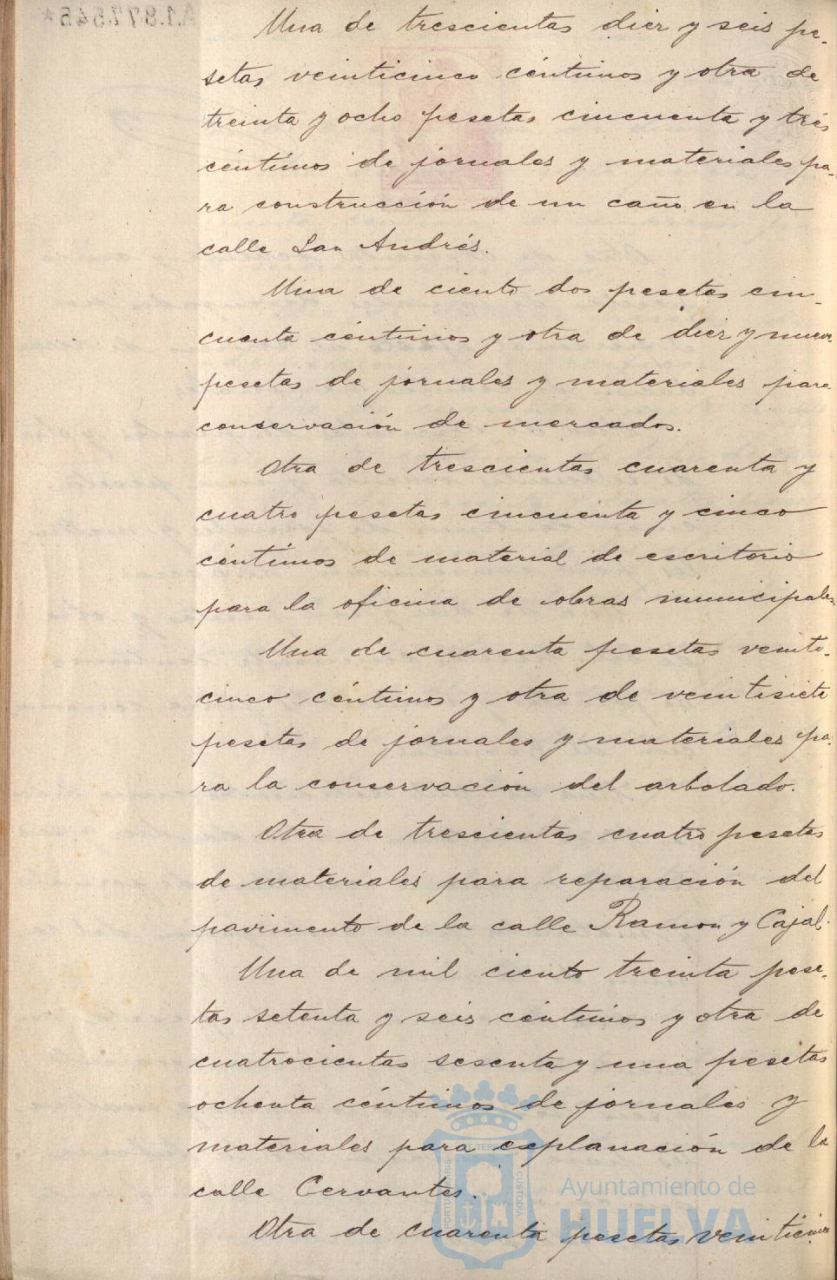 Una de trescientas diez y seis pe-
setas veinticinco céntimos y otra de
treinta y ocho pesetas cincuenta y tres
céntimos de jornales y materiales pa-
ra construcción de un caño en la
calle San Andrés.
Una de ciento dos pesetas cin-
cuenta céntimos y otra de diez y nueve
pesetas de jornales y materiales para
conservación de mercados.
Otra de trescientas cuarenta y
cuatro pesetas cincuenta y cinco
céntimos de material de escritorio
para la oficina de obras municipales
Una de cuarenta pesetas veinti-
cinco céntimos y otra de veintisiete
pesetas de jornales y materiales pa-
ra la conservación del arbolado.
Otra de trescientas cuatro pesetas
de materiales para reparación del
pavimento de la calle Ramon y Cajal.
Una de mil ciento treinta pese-
tas setenta y seis céntimos y otra de
cuatrocientas sesenta y una pesetas
ochenta céntimos de jornales y
materiales para explanación de la
calle Cervantes.
Otra de cuarenta pesetas veinticinco
A1.877.545*
Ayuntamiento de
HUELVA